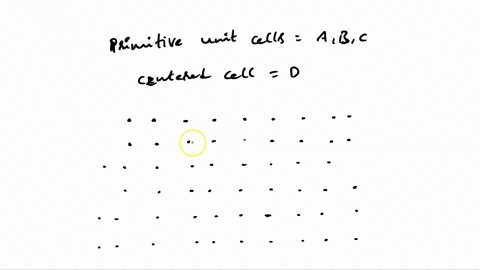 Primitive unit cells = A, B, C
centered cell = D